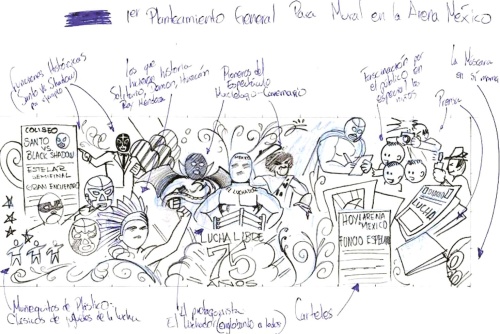 1er Planteamiento General Para Mural en la Arena México
Funciones Históricas
(Santo vs Shadow)
por ejemplo
Los que
hicieron historia
Solitario, Huracán
Ray Mendoza
Pioneros del
Espectáculo
Murciélago - Cavernario
Fascinación por
el público en
especial los
niños
Prensa
La Máscara
en sí misma
COLISEO
SANTO
VS.
BLACK SHADOW
ESTELAR
SEMIFINAL
GRAN ENCUENTRO
EL LUCHADOR
LUCHA LIBRE
75
AÑOS
HOY ARENA
MEXICO
FUNCION ESPECIAL
LUCHA
Muñequitos de Plástico-
Clásicos de la lucha
El protagonista
El Luchador (englobando a todos)
Carteles